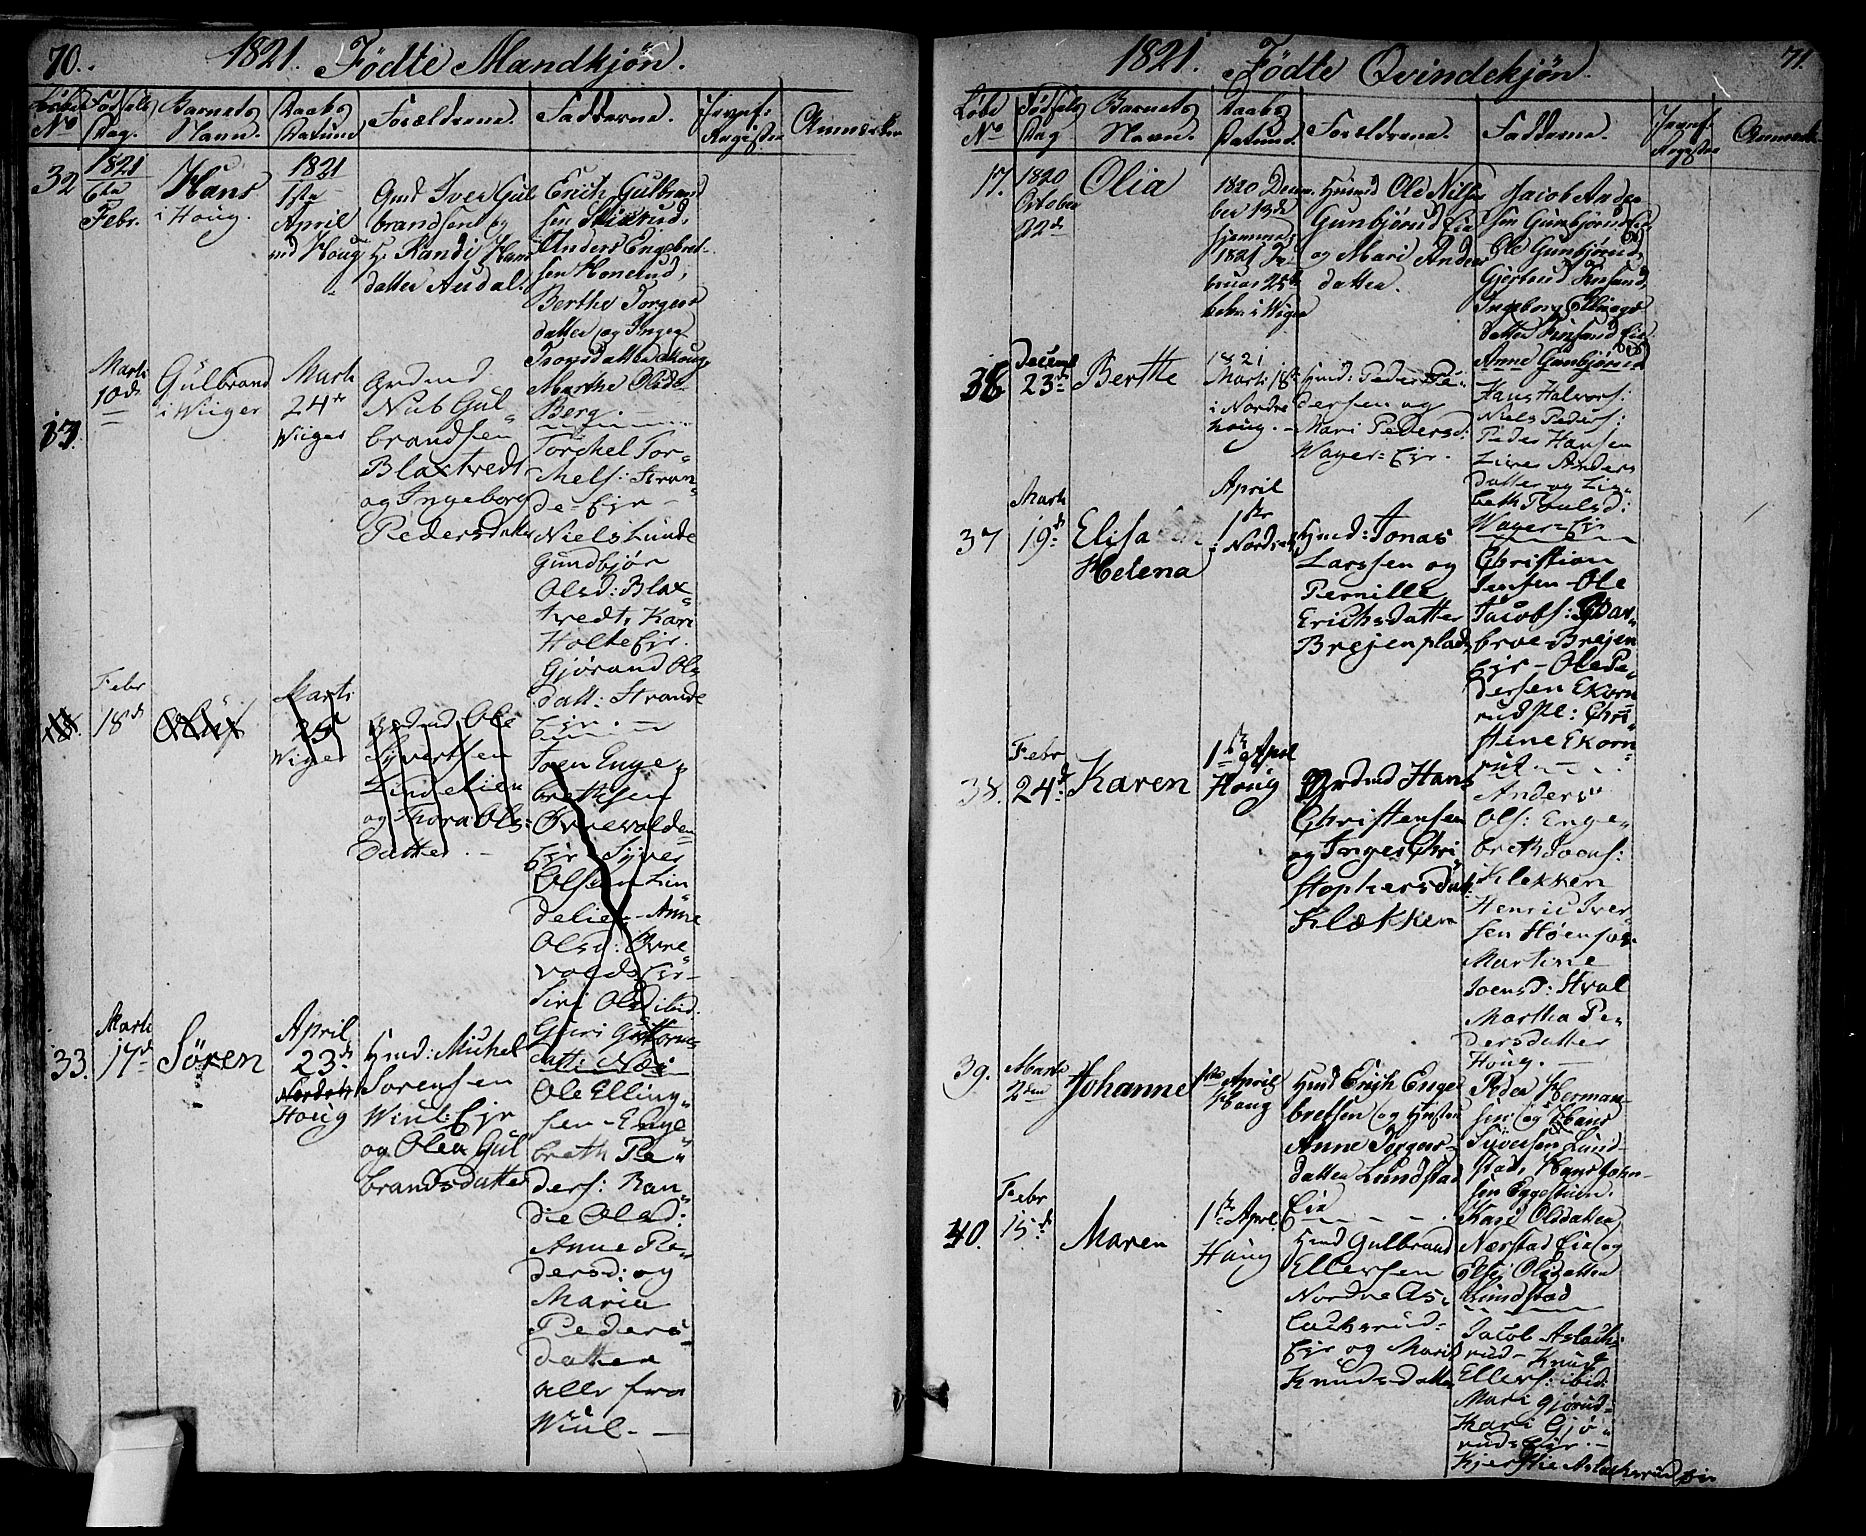 70.
1821. Födte Mandkjön.
Födsels Dag.
Barnets Navn.
Daabs Datum
Forældrene.
Fadderne.
Anmærkn
32
1821
6te
Febr.
Hans
i Houg.
1821
1ste
April
ved Houg
Gmd Iver Gul
brandsen og
H. Randi Hans
datter Audal.
Erich Gulbrand
sen
Anders Engebret-
sen Honerud,
Berthe Torgers
datter og Inger
Tronsdatter Houg
Marthe Olsd.
Berg.
Marti
10de
Gulbrand
i Wiiger
Marti
24de
Wiiger
Grdmd.
Nub Gul
brandsen
Blaxtvedt
og Ingeborg
Pedersdatter
Torchel Tor-
Mels: Stran
de-Eje-
Niels Lunde
Gundbjør
Olsd: Blax
tvedt, Kari
Holte Eje.
Gjørand Ols
datt: Strande
Eje.
Febr
18de
Oluf
Marti
25
Wiger
Grdmd Ole
Syvertsen
Lindelien
og Thora Ols:
datter.
Joen Enge-
brethsen
Ovrevolden
Eje Syver
Olsen Lin
delien-Anne
Olsd: Ovre
volds Eje-
Siri Olsd ibid.
Guri Guttorms
datt:
33.
Marti
17de
Sören
April
23de
Nordre
Houg
Hmd: Michel
Sorensen
Wiul-Eje
og Olea Gul
brandsdatter
Ole Elling-
sen-Enge
breth Pe-
ders: Ran
die Olsd:
Anne Pe-
dersd: og
Maria
Peders-
datter
alle fra
Wiul.
71.
1821. Födte Qvindekjön.
Löbe No
Födsels Dag
Barnets Navn.
Daabs Datum.
Forældrene.
Fadderne.
Anmærk
17.
1820
October
22de
Olia
1820 Decem
ber 13de
hjemme
1821 Fe
bruar 25de
Husmd Ole Nilsen
Gunbjörud Eie
og Mari Anders
datter.
Jacob Ander
sen Gunbjörud Eie
Ole Gunbjörud,
Gjertrud Finsand,
Ingeborg Ellings
datter Finsand Eie
Anne Gunbjörud
36
Decembr
23de
Berthe
1821
Marti 18de
i Nordre
houg.
Hmd: Peder Pe-
dersen og
Mari Pedersd:
Wager-Eje.
Hans Halvors:
Niels Peders:
Peder Hansen
Live Anders
datter og Lis-
beth Poulsd:
Wager-Eje
37
Marti
19de
Elisabeth
Helena
April
1ste
i Nordreh
Hmd: Jonas
Larssen og
Pernille
Erichsdatter
Brejenplads
Christian
Jensen-Ole
Jacobs:
Brejen
Eje-Ole Pe-
dersen Ekorn
rud pl: Chri-
stine Ekorn
rud
38.
Febr
24de
Karen
1ste April
Houg
Grdmd Hans
Christensen
og Inger Chri
stophersdat:
Klækken
Anders
Ols: Enge-
breth Joens:
Klekken
Henric Iver-
sen Höens
Martine
Joensd: Hval
Martha Pe-
dersdatter
Houg.
39.
Marti
2den
Johanne
1ste April
Houg
Hmd Erich Enge
bretsen og Hustru
Anne Torgers-
datter Lundstad
Eie
Peder Herman-
sen og Hans
Siversen Lund-
stad, Hans John-
sen Eggestuen.
Kari Olsdatter
Nærstad Eie og
Else Olsdatter
Lundstad
40.
Febr
15de
Maren
1ste April
Houg
Hmd Gulbrand
Ellersen
Nordre As-
lachsrud-
Eje og Mari
Knudsdatter
Jacob Aslachs-
rud-Knud
Ellers: ibid:
Mari Gjörud-
Kari Gjö-
rud Eje.
Kjerstie Aslachsrud eie